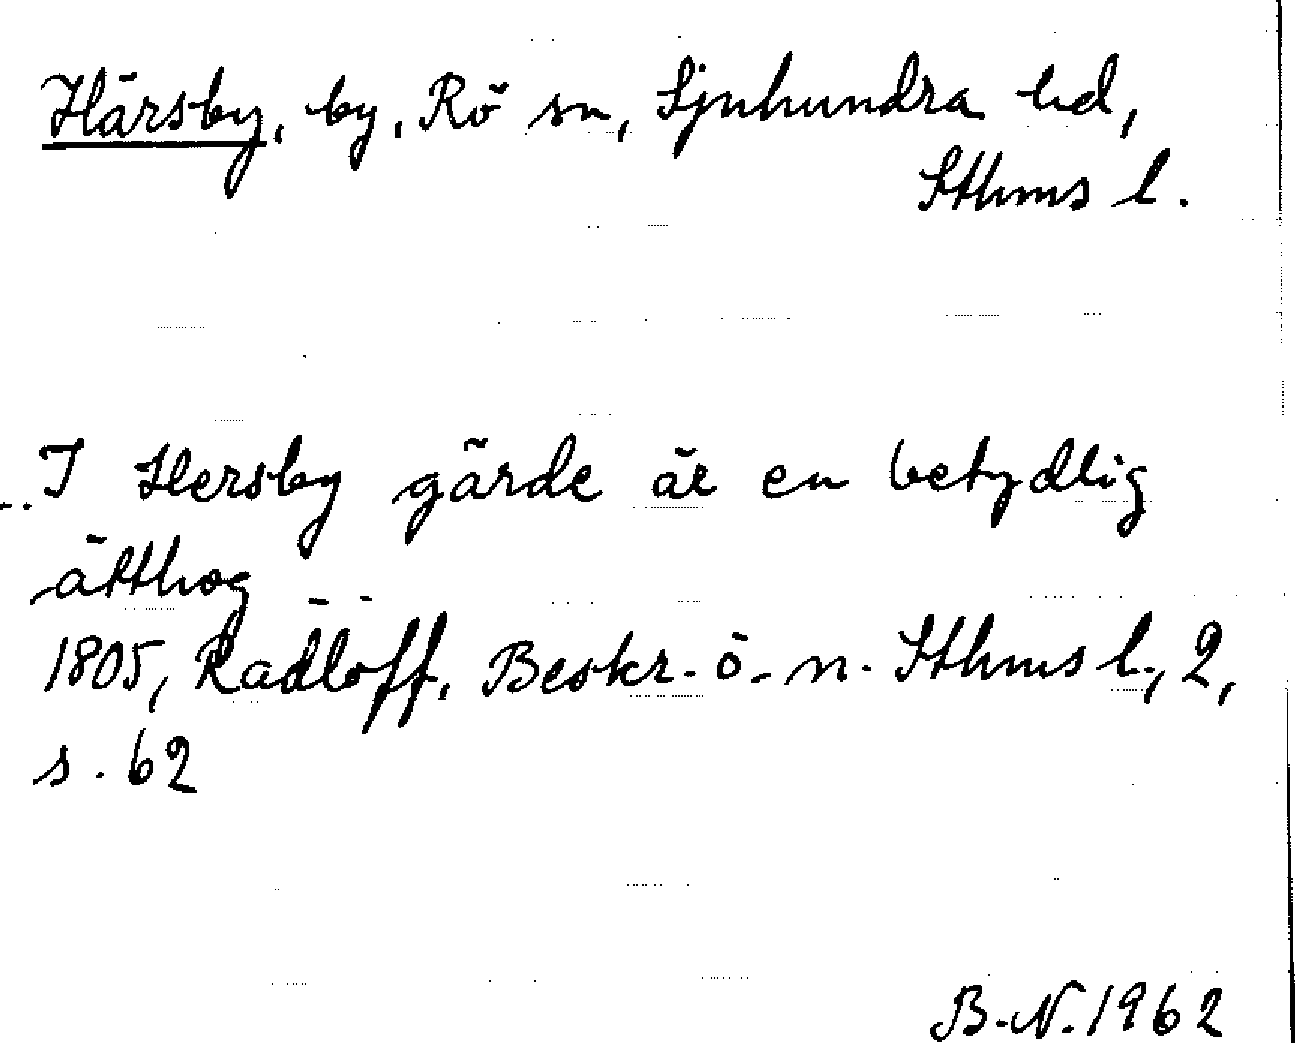 Härsby, by, Rö sn, Sjuhundra hd,
Sthms l.
I Hersby gärde är en betydlig
ätthög
1805, Radloff, Beskr. ö. n. Sthms l., 2,
s. 62
B.N. 1962